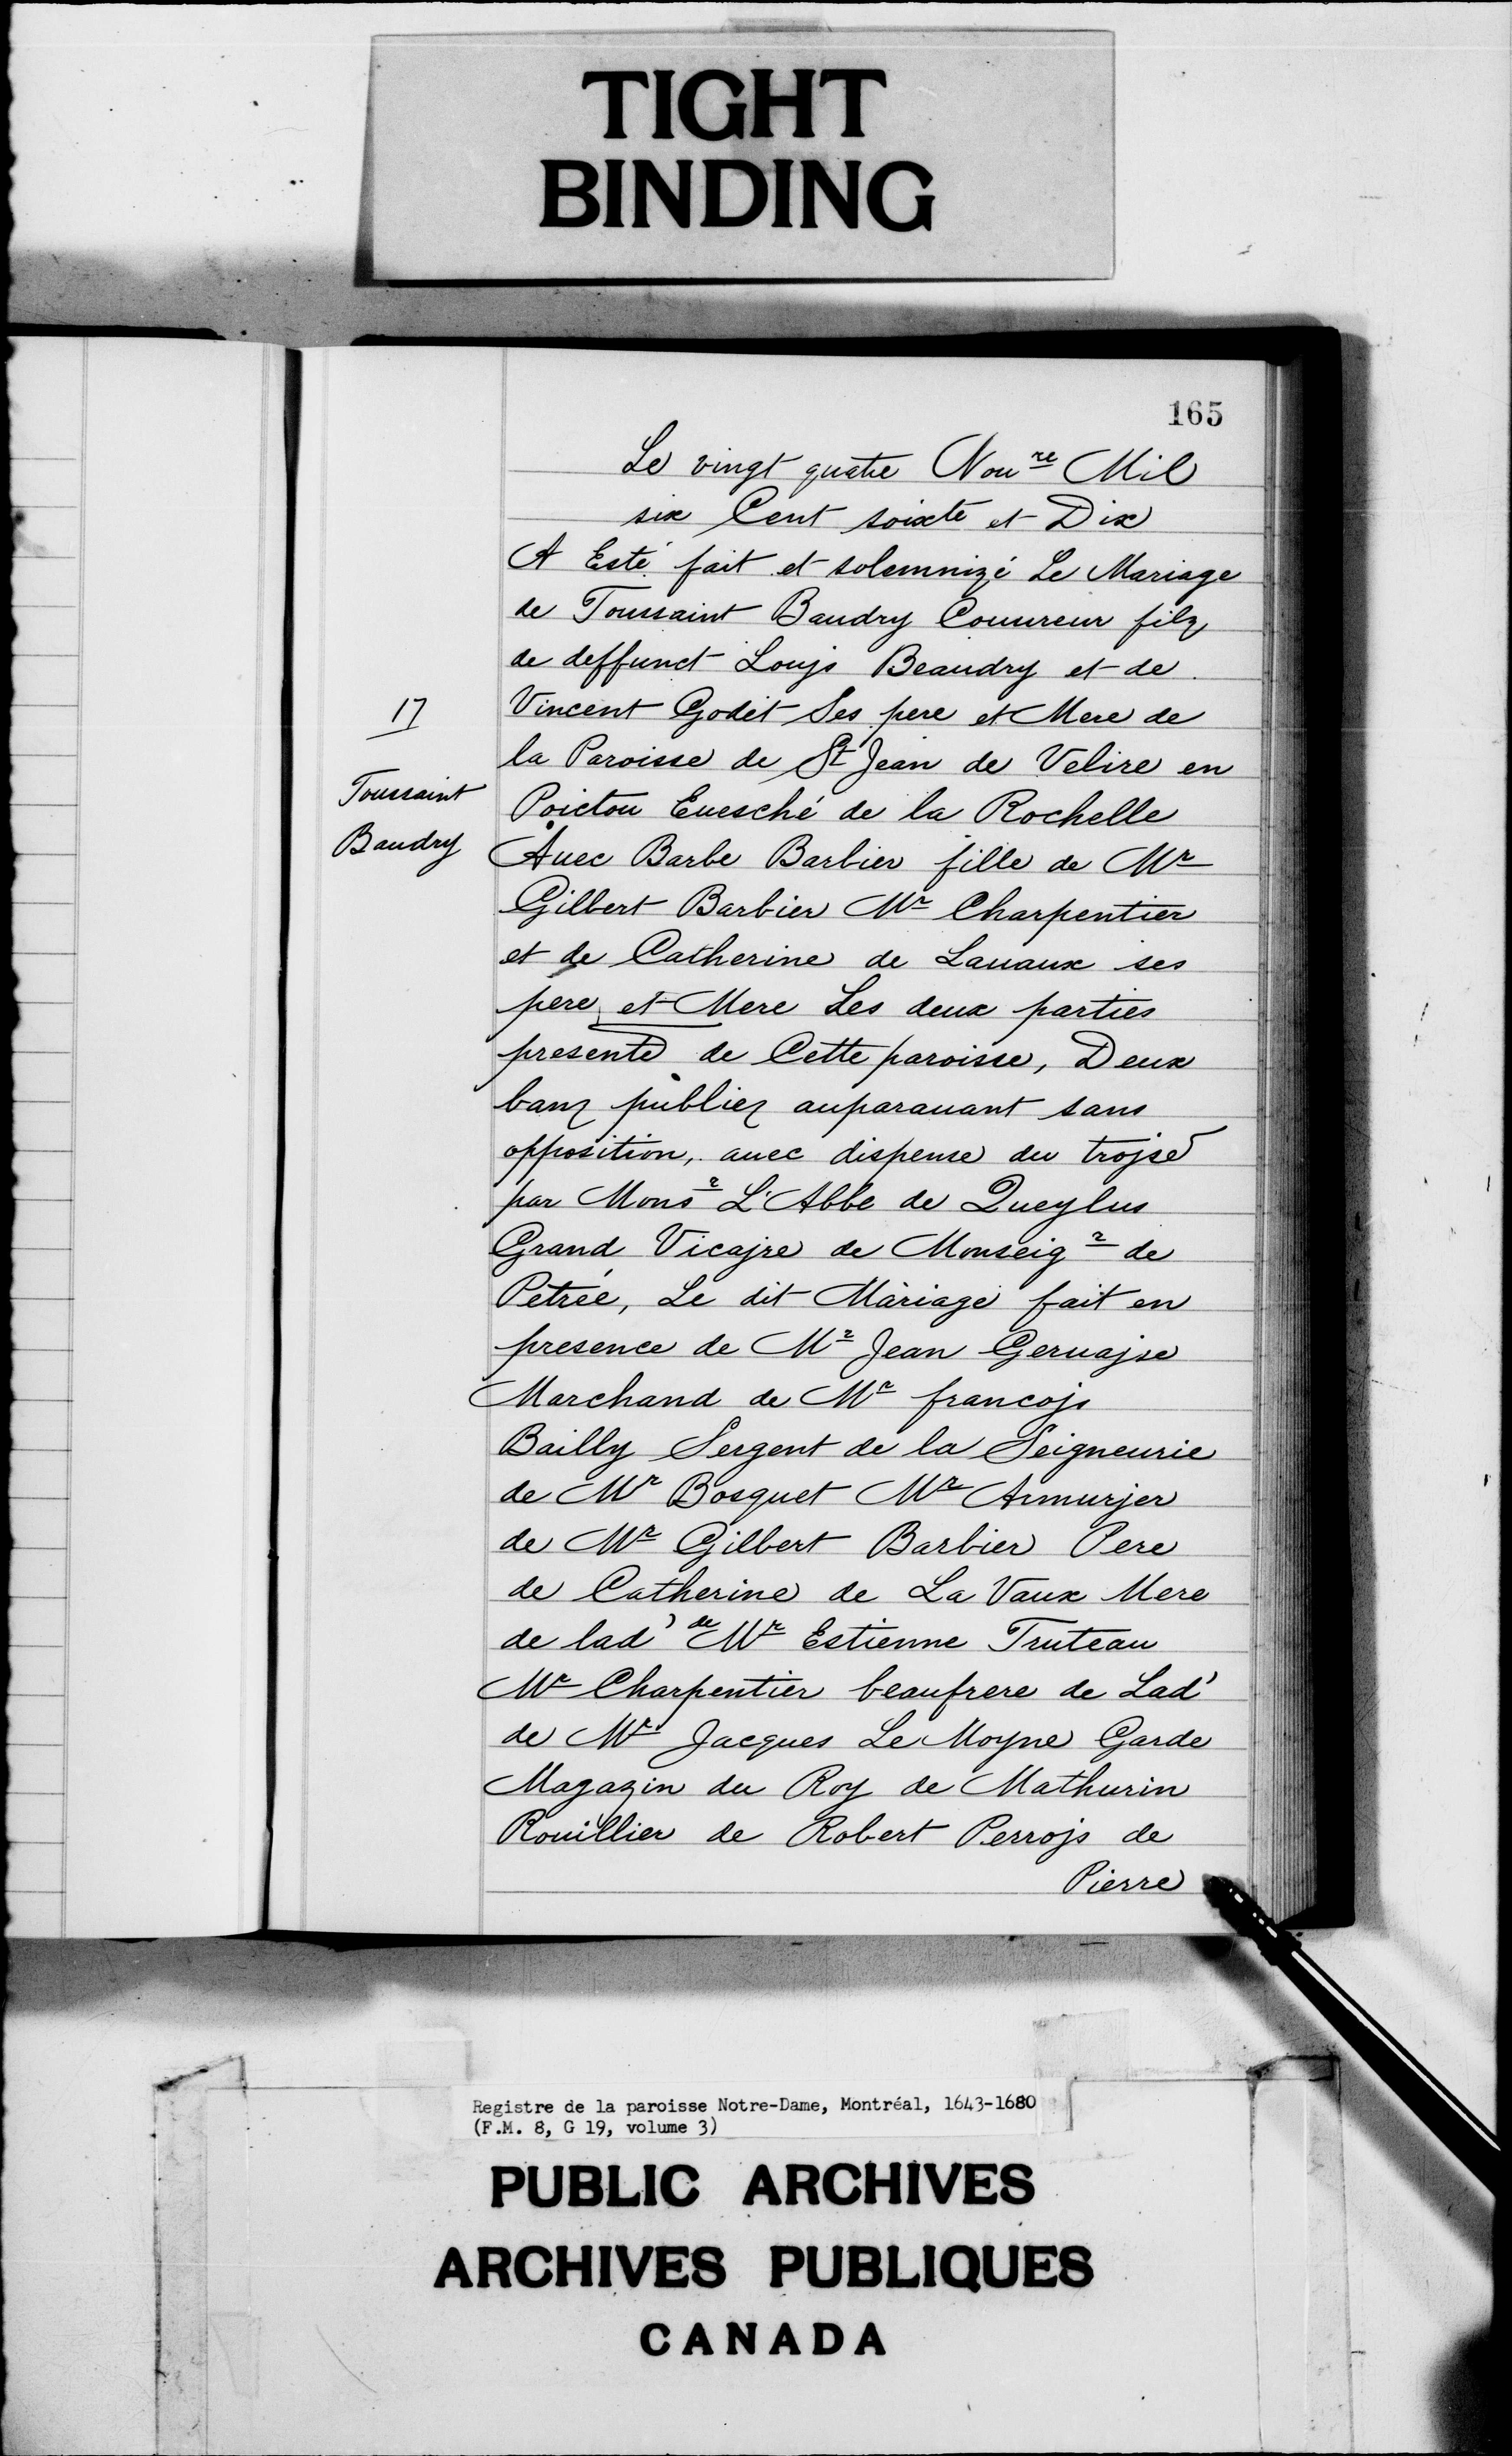 TIGHT
BINDING
165
Le vingt quatre Nou<sup>re</sup> Mil
six Cent soixte et Dix
A Esté fait et solemnizé Le Mariage
de Toussaint Baudry Couureur filz
de deffunct Loujs Beaudry et de
17
Vincent Godet Ses pere et Mere de
la Paroisse de St Jean de Velire en
Toussaint
Baudry
Poictou Euesché de la Rochelle
Auec Barbe Barbier fille de Mr
Gilbert Barbier Mr Charpentier
et de Catherine de Lauaux ses
pere et Mere Les deux parties
presente de Cette paroisse, Deux
banz publiez auparauant sans
opposition, auec dispense du trojse
par Monsr L'Abbe de Queylus
Grand Vicajre de Monseigr de
Pétrée, Le dit Mariage fait en
presence de Mr Jean Geruajse
Marchand de Mr francojs
Bailly Sergent de la Seigneurie
de Mr Bosquet Mr Armurjer
de Mr Gilbert Barbier Pere
de Catherine de La Vaux Mere
de lad' de Mr Estienne Truteau
Mr Charpentier beaufrere de Lad'
de Mr Jacques Le Moyne Garde
Magazin du Roy de Mathurin
Rouillier de Robert Perrojs de
Pierre
Registre de la paroisse Notre-Dame, Montréal, 1643-1680
(F.M. 8, G 19, volume 3)
PUBLIC ARCHIVES
ARCHIVES PUBLIQUES
CANADA